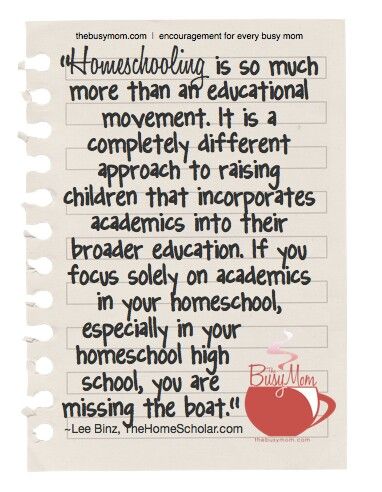 thebusymom.com | encouragement for every busy mom
"Homeschooling is so much
more than an educational
movement. It is a
completely different
approach to raising
children that incorporates
academics into their
broader education. If you
focus solely on academics
in your homeschool,
especially in your
homeschool high
school, you are
missing the boat."
~Lee Binz, TheHomeScholar.com
The
Busy Mom
thebusymom.com